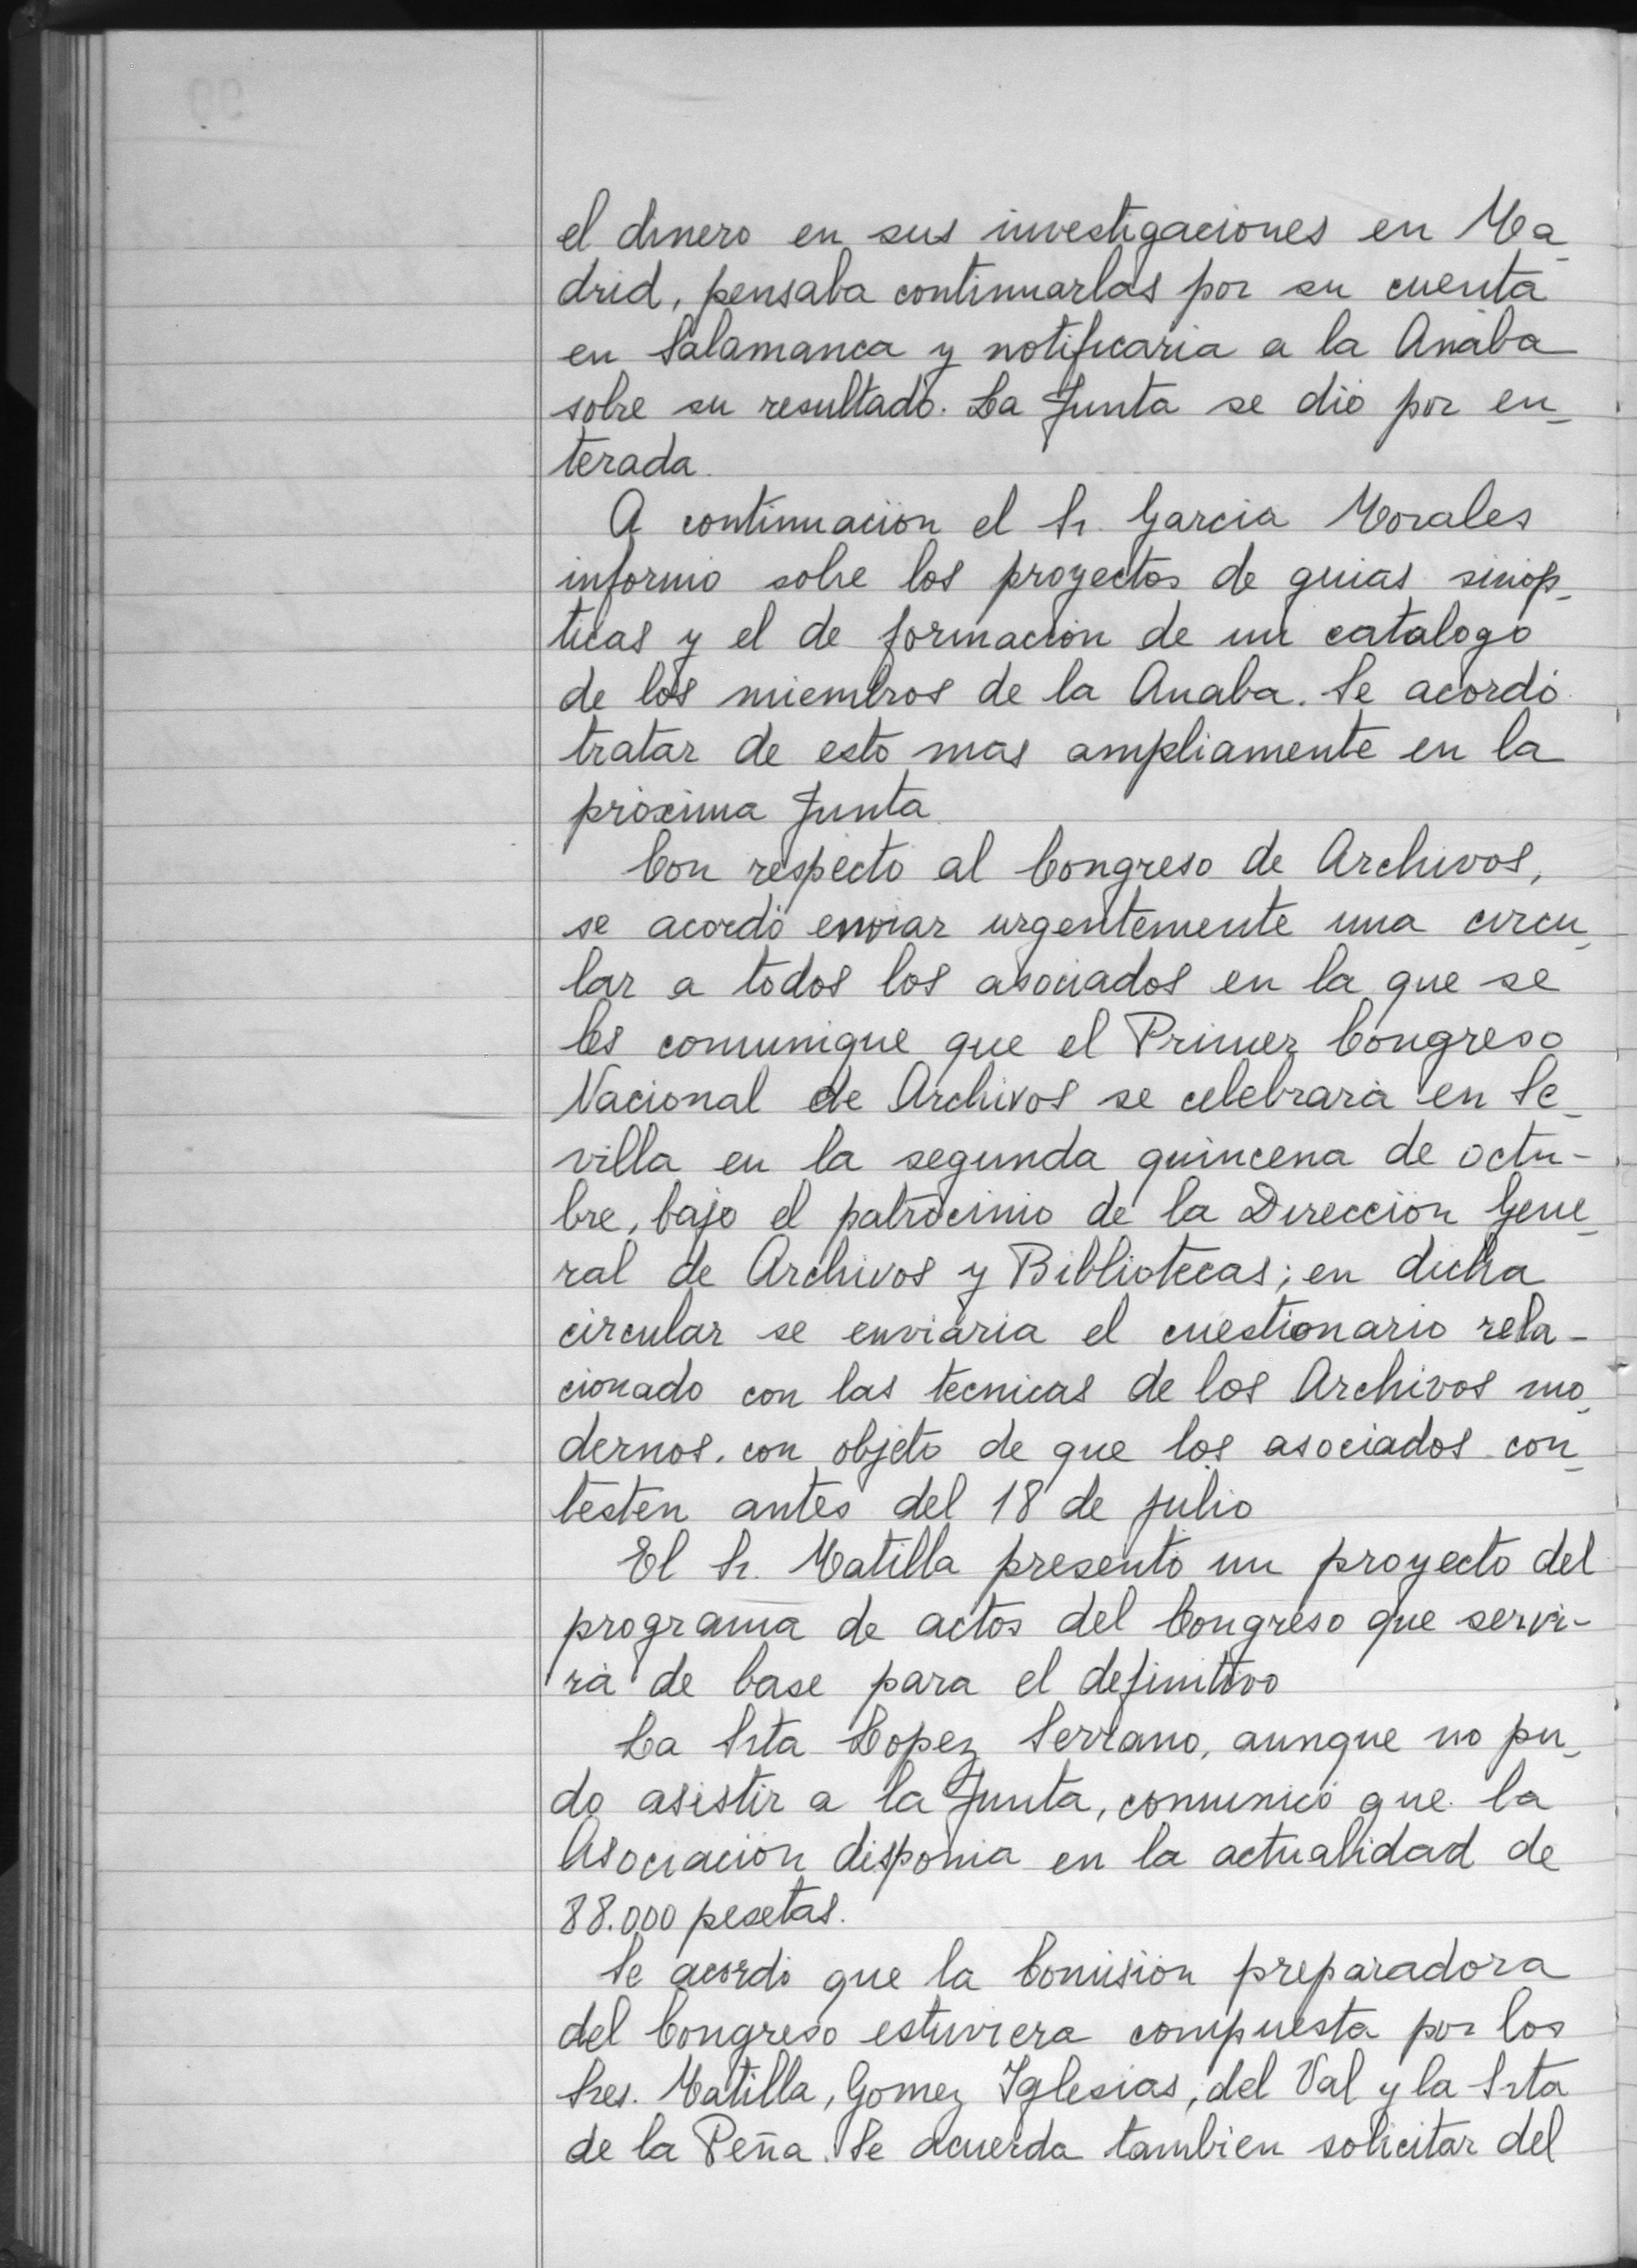 el dinero en sus investigaciones en Ma_
drid, pensaba continuarlas por su cuenta
en Salamanca y notificaria a la Anaba
sobre su resultado. La Junta se dió por en_
terada.
A continuación el Sr. Garcia Morales
informó sobre los proyectos de guias sinóp_
ticas y el de formación de un catalogo
de los miembros de la Anaba. Se acordó
tratar de esto mas ampliamente en la
próxima Junta
Con respecto al Congreso de Archivos,
se acordó enviar urgentemente una circu_
lar a todos los asociados en la que se
les comunique que el Primer Congreso
Nacional de Archivos se celebrará en Se_
villa en la segunda quincena de octu-
bre, bajo el patrocinio de la Dirección Gene_
ral de Archivos y Bibliotecas; en dicha
circular se enviaria el cuestionario rela-
cionado con las tecnicas de los Archivos mo_
dernos. con objeto de que los asociados con_
testen antes del 18 de julio
El Sr. Matilla presentó un proyecto del
programa de actos del Congreso que servi-
rá de base para el definitivo
La Srta Lopez Serrano, aunque no pu_
do asistir a la Junta, comunicó que la
Asociación disponia en la actualidad de
88.000 pesetas.
Se acordó que la Comisión preparadora
del Congreso estuviera compuesta por los
Sres. Matilla, Gomez Iglesias, del Val y la Srta
de la Peña. Se acuerda tambien solicitar del